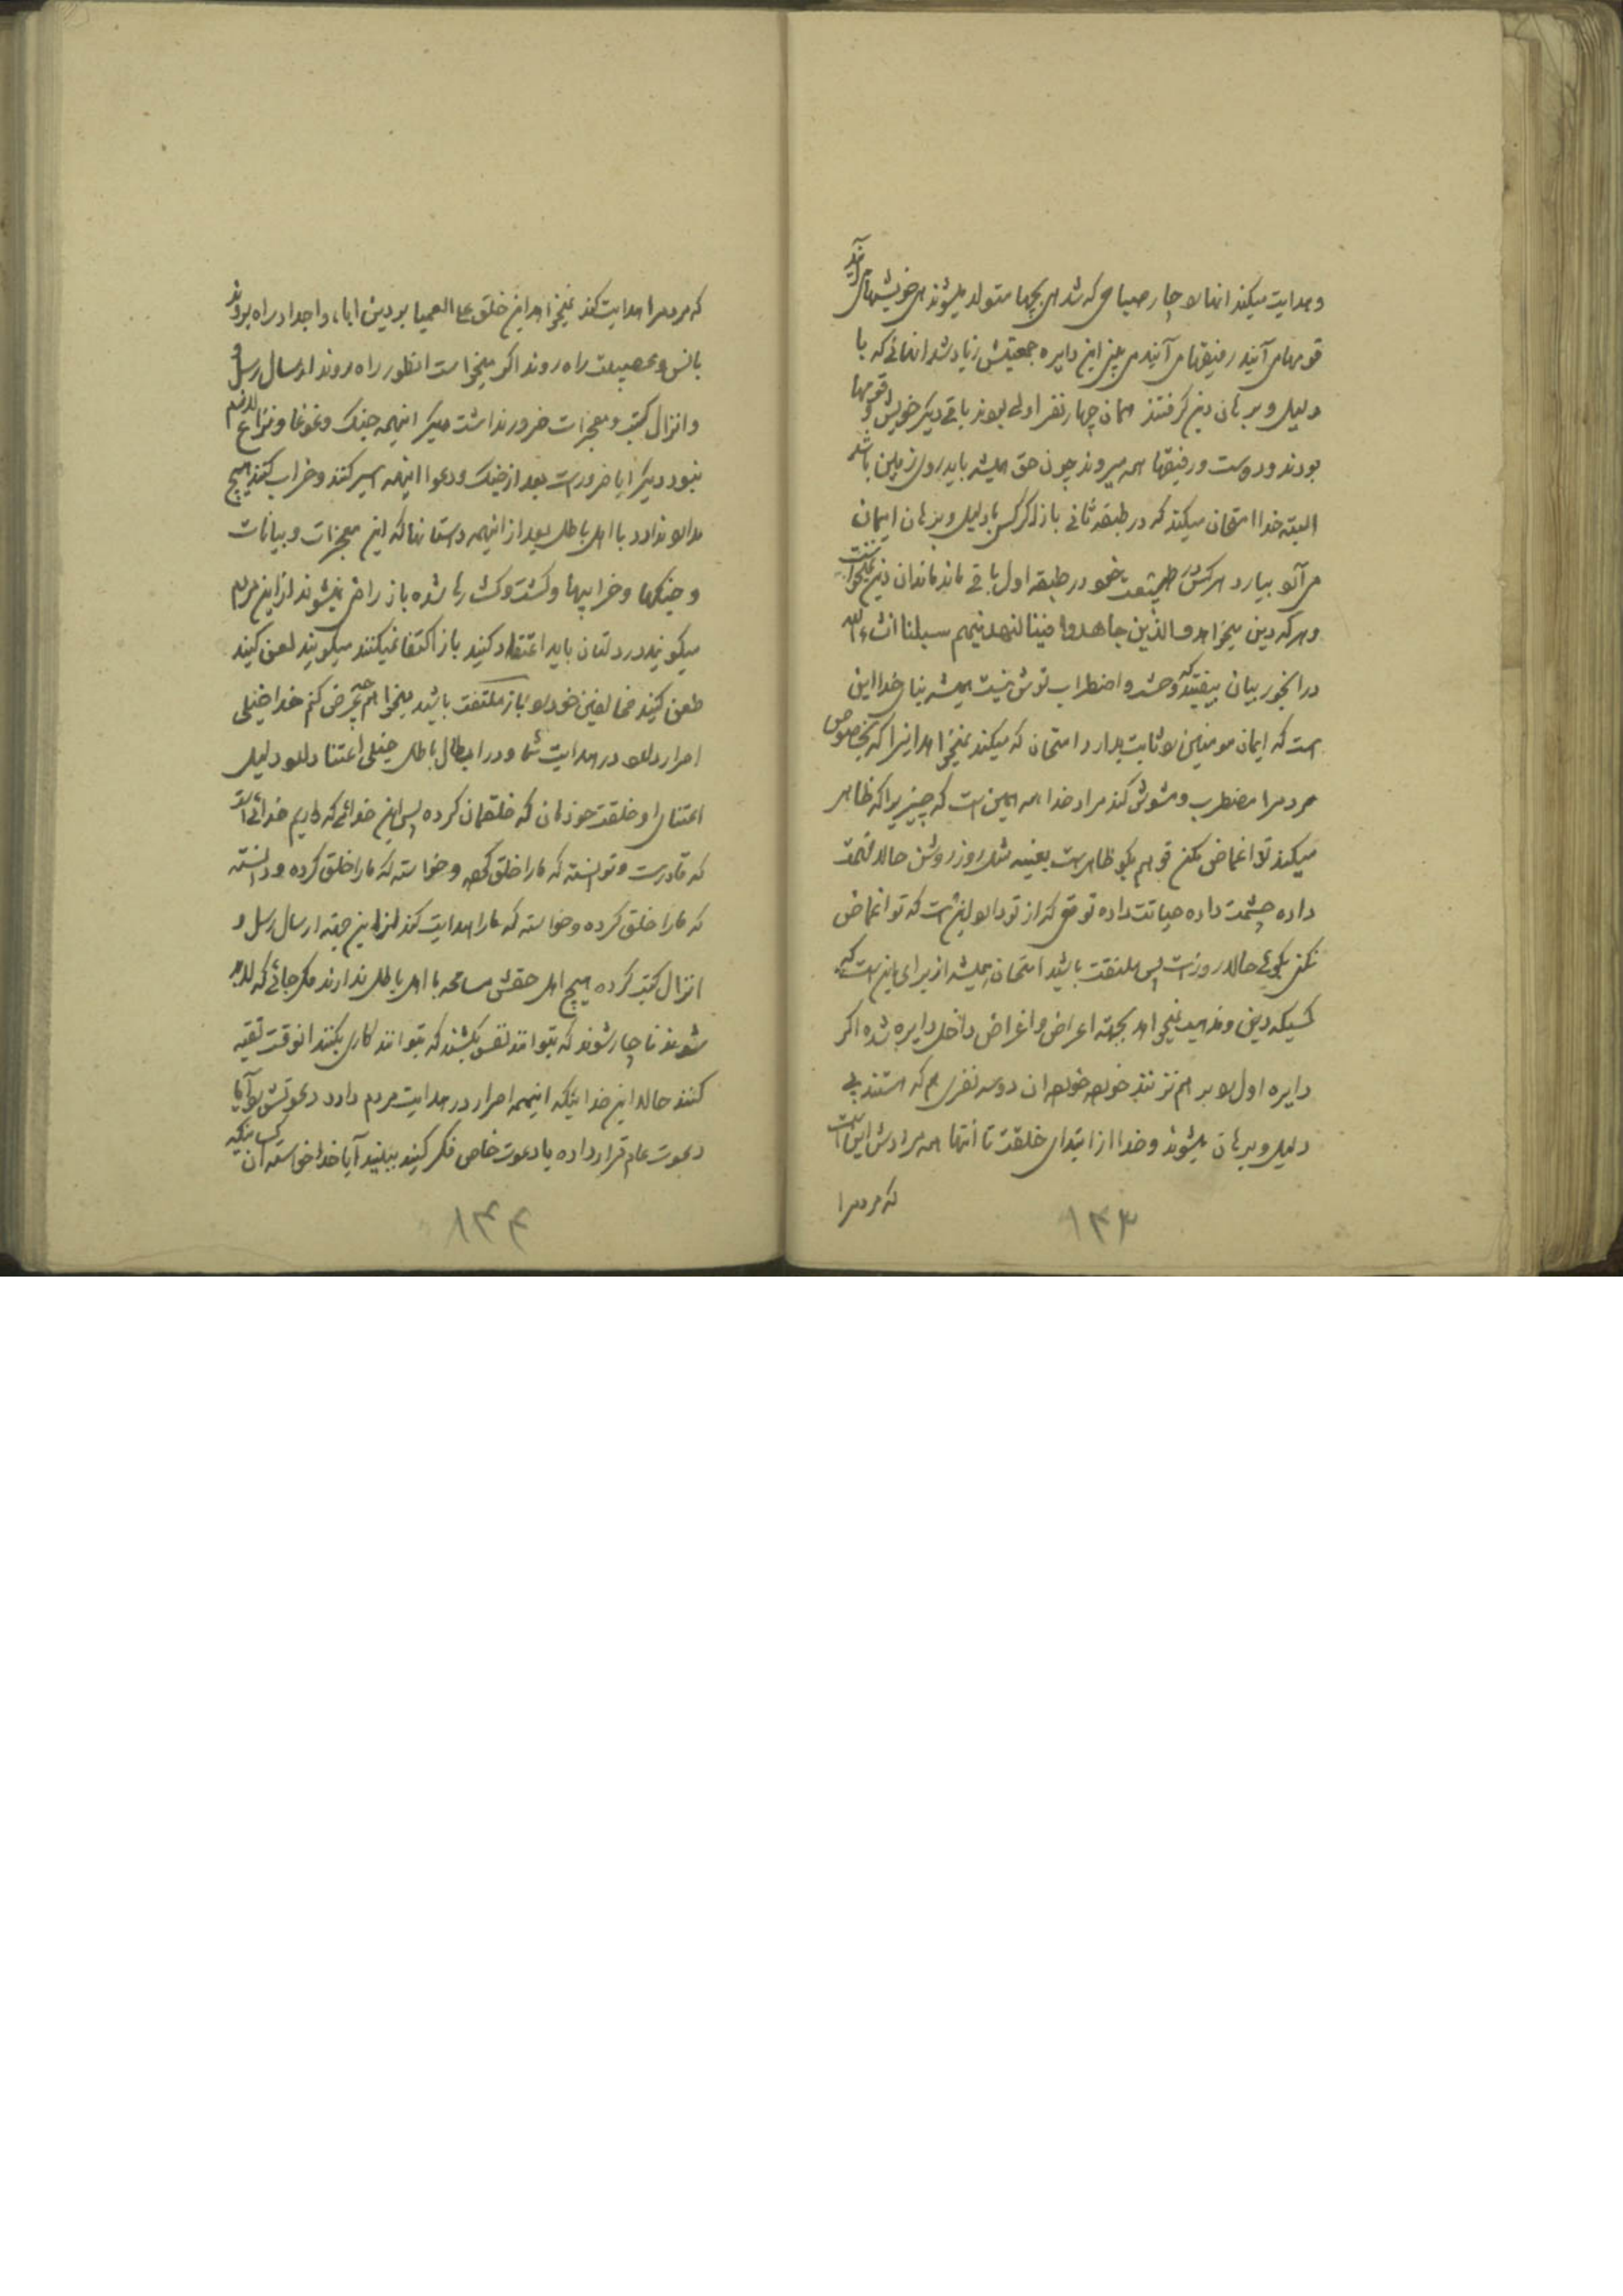 و هدایت میکند انها را چار صباحی که شد هی بچها متولد میشوند هی خویشهای آیند
قومهامی آیند رفیقهامی آیند می بینی این دایره جمعیتش زیاد شد انهائی که با
دلیل و برهان دین گرفتند همان چهار نفر اولی بودند باقی دیگر خویش و قومها
بودند و دوست و رفیقها همه میروند چون حق همیشه باید روی زمین باشد
البته خدا امتحان میکند که در طبقه ثانی باز هر کس با دلیل و برهان ایمان
می آورد بیارد هر کس در طبیعت خود در طبقه اول باقی ماند ماند ان دین نمیخواست
و هر که دین میخواهد والذین جاهدوا فینا لنهدینهم سبلنا انشاءالله
در انجور بیان بیفتید که وحشت و اضطراب توش نیست همیشه بنای خدا این
است که ایمان مومنین را ثابت بدارد امتحان که میکند نمیخواهد اینرا که بخصوص
مردمرا مضطرب و مشوش کند مراد خدا همه همین است که چیزیرا که ظاهر
میکند تو اغماض نکنی تو هم بگو ظاهر است بعینه مثل روز روشن حالا فهمت
داده چشمت داده حیاتت داده توقعی که از تو دارد این است که تو اغماض
نکنی بگوئی حالا روز است پس ملتفت باشید امتحان همیشه از برای این است که
کسیکه دین و مذهب نمیخواهد بجهة اعراض و اغراض داخل دایره شده اگر
دایره اول را بر هم نزنند خورده خورده ان دو سه نفری هم که هستند بی
دلیل و برهان میشوند و خدا از ابتدای خلقت تا انتها همه مرادش این است
که مردمرا
۱۳۳
که مردمرا هدایت کند نمیخواهد این خلق علی العمیا بر دین اباء و اجداد راه بروند
بانس و عصبیت راه روند اگر میخواست انطور راه روند ارسال رسل و
و انزال کتب و معجزات ضرور نداشت دیگر اینهمه جنک و غوغا و نزاع لازم
نبود دیگر ایا ضرور است بعد از جنک و دعوا اینهمه اسیر کنند و خراب کنند هیچ
مدارا ندارد با اهل باطل بعد از اینهمه دستانها که این معجزات و بیانات
و جنگها و خرابیها و کشت و کشتارها شده باز راضی نمیشوند از این مردم
میگویند در دلتان باید اعتقاد کنید باز اکتفا نمیکنند میگویند لعن کنید
طعن کنید مخالفین خود را باز ملتفت باشید میخواهم چه عرض کنم خدا خیلی
اصرار دارد در هدایت شما و در ابطال باطل خیلی اعتنا دارد دلیل
اعتنای او خلقت خودمان که خلقمان کرده پس این خدائی که داریم خدائی است
که قادر است و توانسته که مارا خلق کرده و خواسته که مارا خلق کرده و دانسته
که مارا خلق کرده و خواسته که مارا هدایت کند از این جهة ارسال رسل و
انزال کتب کرده هیچ اهل حقش مسامحه با اهل باطل ندارند مگر جائی که لابد
شوند ناچار شوند که نتوانند نفس بکشند که نتوانند کاری بکنند انوقت تقیه
کنند حالا این خدائیکه اینهمه اصرار در هدایت مردم دارد دعوتش را آیا
دعوت عام قرار داده یا دعوت خاص فکر کنید ببینید آیا خدا خواسته ان کسانیکه
۱۳۴